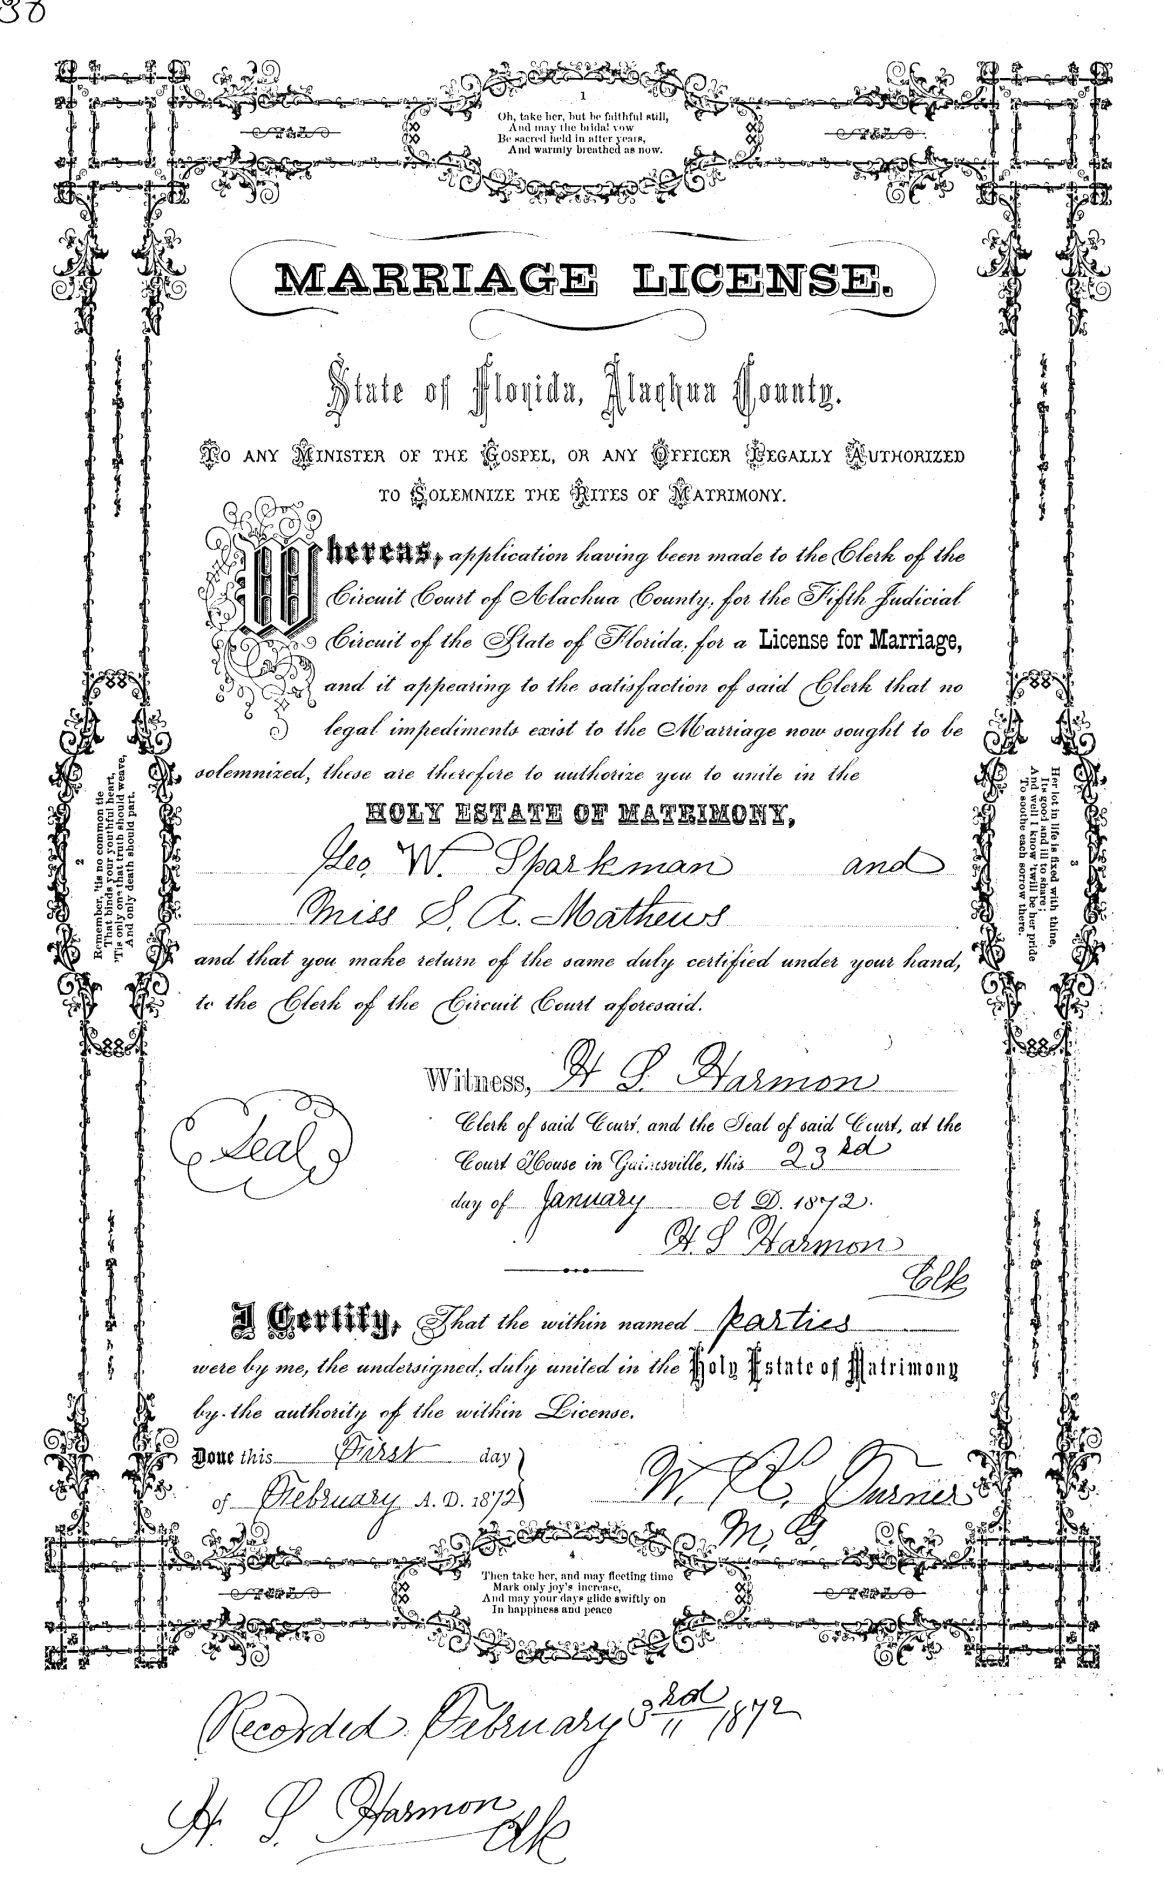 38
1
Oh, take her, but be faithful still,
And may the bridal vow
Be sacred held in after years,
And warmly breathed as now.
MARRIAGE LICENSE.
State of Florida, Alachua County.
TO ANY MINISTER OF THE GOSPEL, OR ANY OFFICER LEGALLY AUTHORIZED
TO SOLEMNIZE THE RITES OF MATRIMONY.
Whereas, application having been made to the Clerk of the
Circuit Court of Alachua County, for the Fifth Judicial
Circuit of the State of Florida, for a License for Marriage,
and it appearing to the satisfaction of said Clerk that no
legal impediments exist to the Marriage now sought to be
solemnized, these are therefore to authorize you to unite in the
HOLY ESTATE OF MATRIMONY,
Geo. W. Sparkman and
Miss S. A. Mathews
and that you make return of the same duly certified under your hand,
to the Clerk of the Circuit Court aforesaid.
2
Remember, 'tis no common tie
That binds your youthful heart,
'Tis only one that truth should weave,
And only death should part.
3
Her lot in life is fixed with thine,
Its good and ill to share;
And well I know 'twill be her pride
To soothe each sorrow there.
Witness, H S Harmon
Seal
Clerk of said Court, and the Seal of said Court, at the
Court House in Gainesville, this 23rd
day of January A D. 1872.
H. S Harmon
Clk
I Certify, That the within named parties
were by me, the undersigned, duly united in the Holy Estate of Matrimony
by the authority of the within License.
Done this First day
of February A. D. 1872
W. K. Turner
M. G.
4
Then take her, and may fleeting time
Mark only joy's increase,
And may your days glide swiftly on
In happiness and peace
Recorded February 3rd 1872
H. S. Harmon Clk